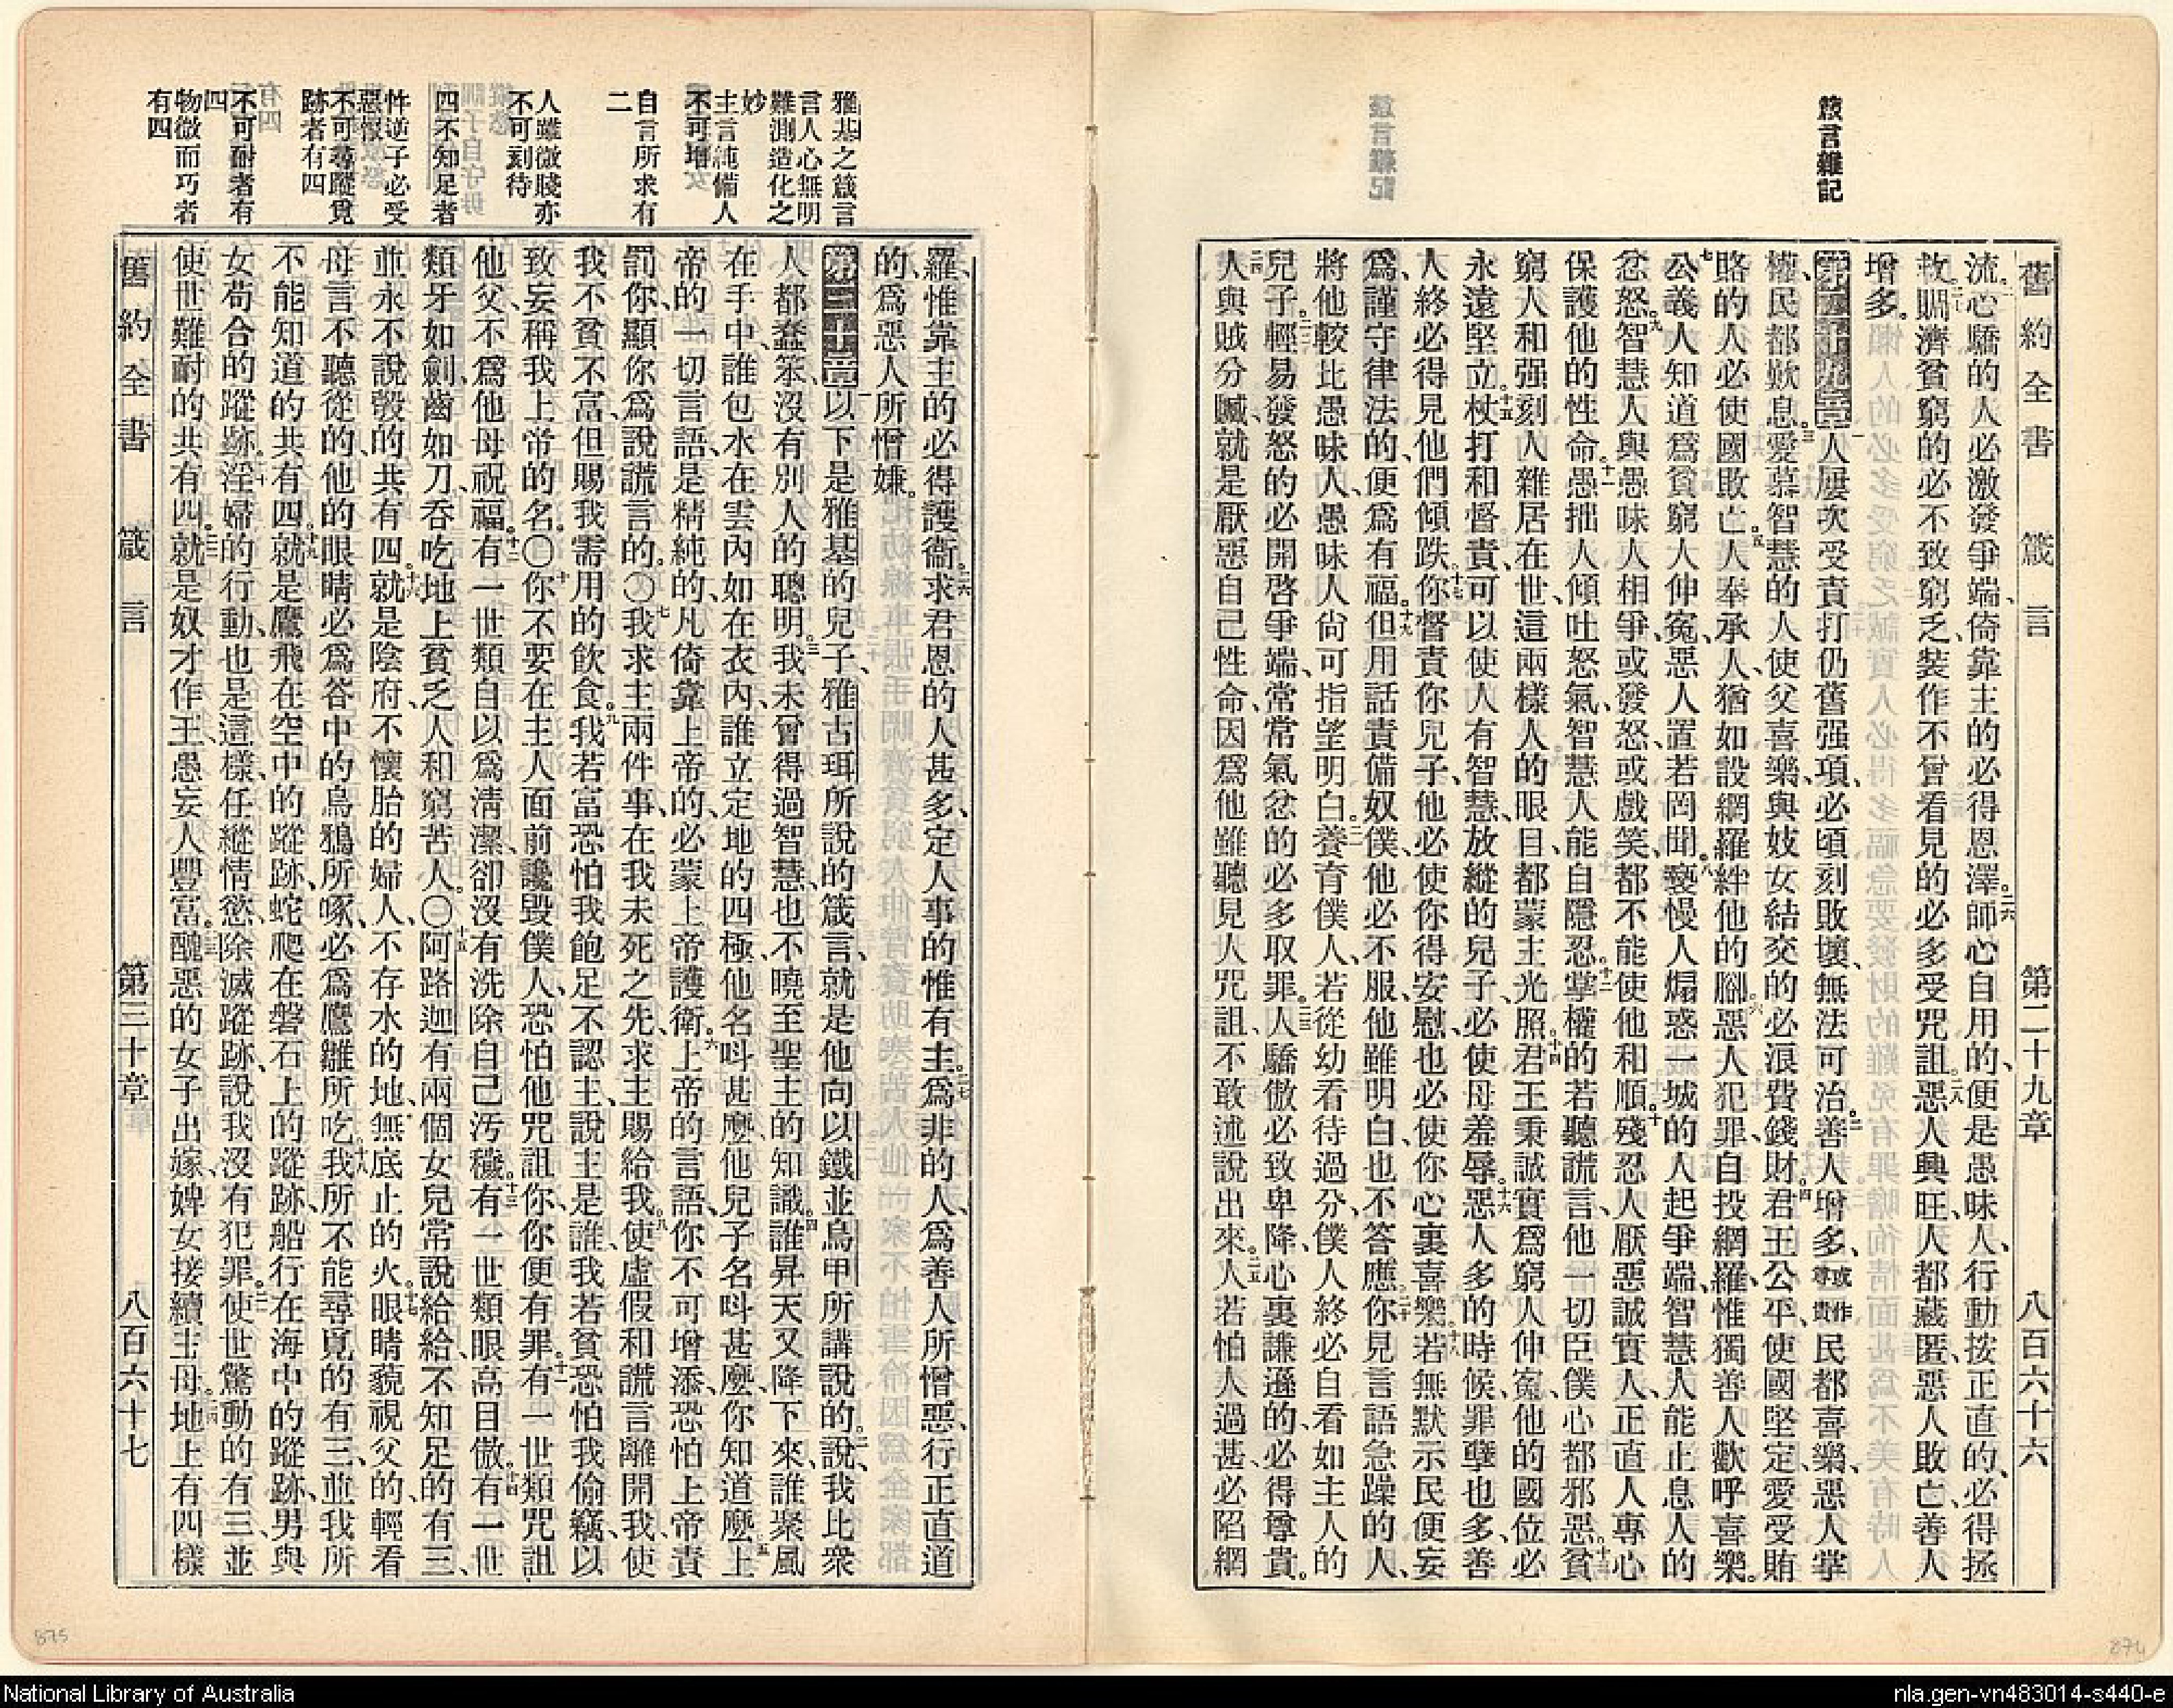 箴言雜記
舊約全書 箴言 第二十九章 八百六十六
流心驕的人必激發爭端、倚靠主的必得恩澤。二六師心自用的、便是愚昧人、行動按正直的、必得拯
救。二七賙濟貧窮的必不致窮乏、裝作不曾看見的必多受咒詛。二八惡人興旺、人都藏匿、惡人敗亡、善人
增多。
第二十九章一人屢次受責打仍舊强項、必頃刻敗壞、無法可治。二善人增多、或作尊貴民都喜樂、惡人掌
權、民都歎息。三愛慕智慧的人、使父喜樂、與妓女結交的必浪費錢財。四君王公平、使國堅定、愛受賄
賂的人必使國敗亡。五人奉承人、猶如設網羅絆他的腳。六惡人犯罪、自投網羅、惟獨善人歡呼喜樂。
七公義人知道爲貧窮人伸寃、惡人置若罔聞。八褻慢人煽惑一城的人起爭端、智慧人能止息人的
忿怒。九智慧人與愚昧人相爭、或發怒、或戲笑、都不能使他和順。十殘忍人厭惡誠實人、正直人專心
保護他的性命。十一愚拙人傾吐怒氣、智慧人能自隱忍。十二掌權的若聽謊言、他一切臣僕心都邪惡。十三貧
窮人和强刻人雜居在世、這兩樣人的眼目、都蒙主光照。十四君王秉誠實爲窮人伸寃、他的國位必
永遠堅立。十五杖打和督責、可以使人有智慧、放縱的兒子、必使母羞辱。十六惡人多的時候、罪孽也多、善
人終必得見他們傾跌。十七你督責你兒子、他必使你得安慰、也必使你心裏喜樂。十八若無默示、民便妄
爲、謹守律法的、便爲有福。十九但用話責備奴僕、他必不服、他雖明白、也不答應。二十你見言語急躁的人、
將他較比愚昧人、愚昧人尙可指望明白。二一養育僕人、若從幼看待過分、僕人終必自看如主人的
兒子。二二輕易發怒的必開啓爭端、常常氣忿的必多取罪。二三人驕傲必致卑降、心裏謙遜的、必得尊貴。
二四人與賊分贓、就是厭惡自己性命、因爲他雖聽見人咒詛、不敢述說出來。二五人若怕人過甚、必陷網
羅、惟靠主的必得護衞。二六求君恩的人甚多、定人事的惟有主。二七爲非的人、爲善人所憎惡、行正直道
的、爲惡人所憎嫌。
第三十章一以下是雅基的兒子、雅古珥所說的箴言、就是他向以鐵並烏甲所講說的。二說、我比衆
人都蠢笨、沒有別人的聰明。三我未曾得過智慧、也不曉至聖主的知識。四誰昇天又降下來、誰聚風
在手中、誰包水在雲內、如在衣內、誰立定地的四極、他名叫甚麼、他兒子名叫甚麼、你知道麼。五上
帝的一切言語、是精純的、凡倚靠上帝的、必蒙上帝護衛。六上帝的言語、你不可增添、恐怕上帝責
罰你、顯你爲說謊言的。〇七我求主兩件事、在我未死之先、求主賜給我。八使虛假和謊言離開我、使
我不貧不富、但賜我需用的飲食。九我若富恐怕我飽足不認主、說主是誰、我若貧恐怕我偷竊、以
致妄稱我上帝的名。〇十你不要在主人面前讒毀僕人、恐怕他咒詛你、你便有罪。十一有一世類咒詛
他父、不爲他母祝福。十二有一世類自以爲淸潔、卻沒有洗除自己汚穢。十三有一世類眼高目傲。十四有一世
類牙如劍、齒如刀、吞吃地上貧乏人和窮苦人。〇十五阿路迦有兩個女兒常說給給、不知足的有三、
並永不說彀的共有四。十六就是陰府、不懷胎的婦人、不存水的地、無底止的火。十七眼睛藐視父的、輕看
母言不聽從的、他的眼睛必爲谷中的烏鴉所啄、必爲鷹雛所吃。十八我所不能尋覓的有三、並我所
不能知道的共有四。十九就是鷹飛在空中的蹤跡、蛇爬在磐石上的蹤跡、船行在海中的蹤跡、男與
女苟合的蹤跡。二十淫婦的行動、也是這樣、任縱情慾、除滅蹤跡、說我沒有犯罪。二一使世驚動的有三、並
使世難耐的共有四。二二就是奴才作王、愚妄人豐富。二三醜惡的女子出嫁、婢女接續主母。二四地上有四樣
舊約全書 箴言 第三十章 八百六十七
雅基之箴言
言人心無明
難測造化之
妙
主言純備人
不可增
自言所求有
二
人雖微賤亦
不可刻待
四不知足者
忤逆子必受
惡報
不可尋蹤覓
跡者有四
不可耐者有
四
物微而巧者
有四
875
874
National Library of Australia
nla.gen-vn483014-s440-e